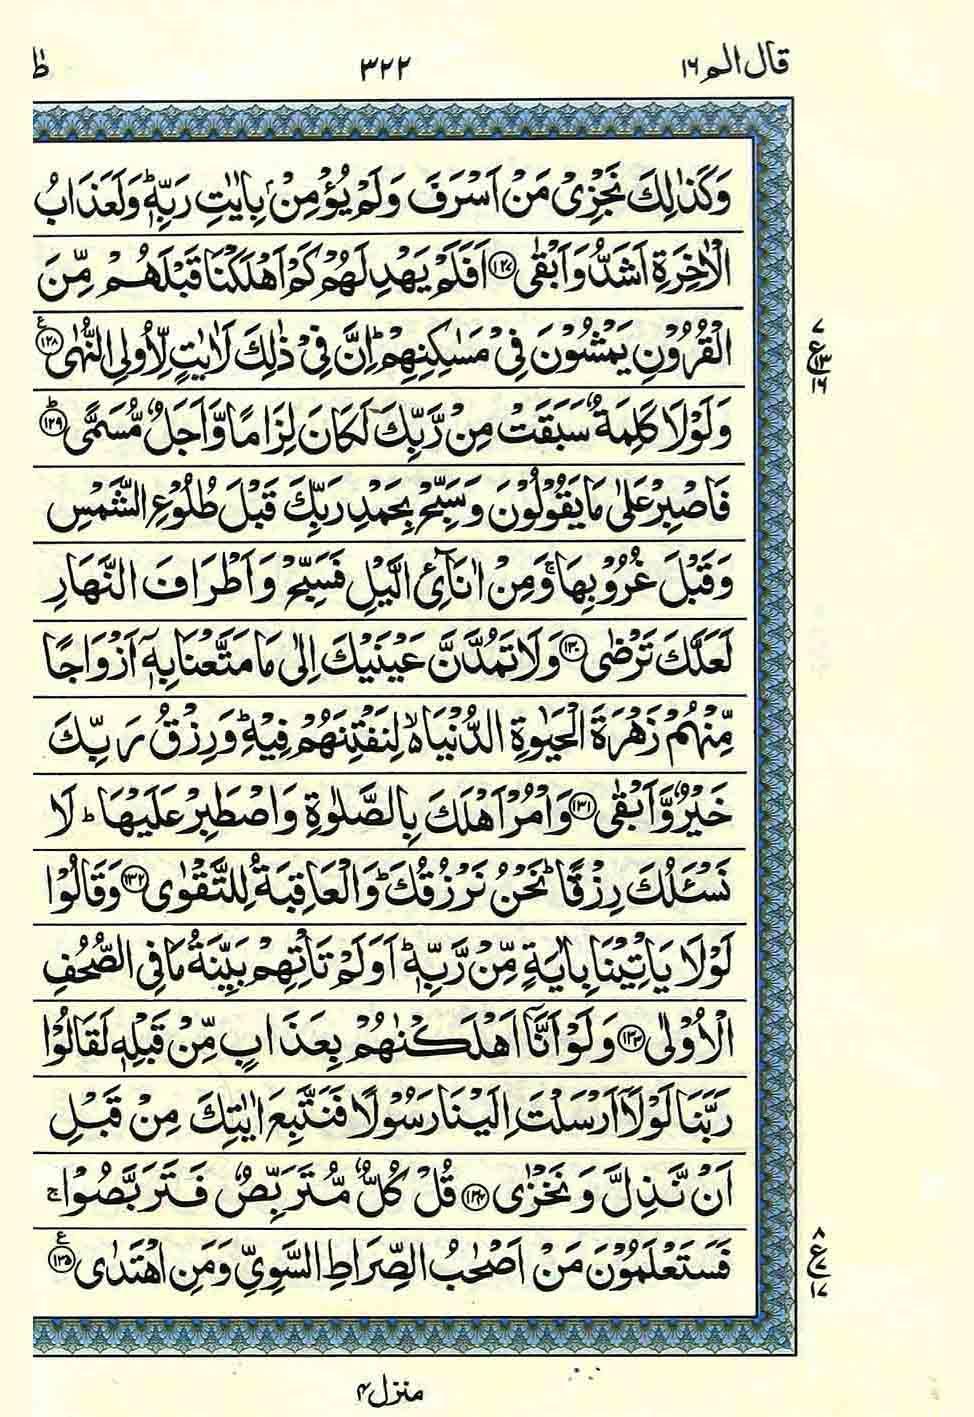 قال الم ١٦ ٣٢٢ طٰ
وَكَذٰلِكَ نَجْزِیْ مَنْ اَسْرَفَ وَلَمْ یُؤْمِنْۢ بِاٰیٰتِ رَبِّهٖ ؕ وَلَعَذَابُ
الْاٰخِرَةِ اَشَدُّ وَاَبْقٰی ﴿۱۲۷﴾ اَفَلَمْ یَهْدِ لَهُمْ كَمْ اَهْلَكْنَا قَبْلَهُمْ مِّنَ
الْقُرُوْنِ یَمْشُوْنَ فِیْ مَسٰكِنِهِمْ ؕ اِنَّ فِیْ ذٰلِكَ لَاٰیٰتٍ لِّاُولِی النُّهٰی ﴿۱۲۸﴾ ع
۷ ع ۱۳ ۱۶
وَلَوْلَا كَلِمَةٌ سَبَقَتْ مِنْ رَّبِّكَ لَكَانَ لِزَامًا وَّاَجَلٌ مُّسَمًّی ﴿۱۲۹﴾ ؕ
فَاصْبِرْ عَلٰی مَا یَقُوْلُوْنَ وَسَبِّحْ بِحَمْدِ رَبِّكَ قَبْلَ طُلُوْعِ الشَّمْسِ
وَقَبْلَ غُرُوْبِهَا ۚ وَمِنْ اٰنَآئِ الَّیْلِ فَسَبِّحْ وَاَطْرَافَ النَّهَارِ
لَعَلَّكَ تَرْضٰی ﴿۱۳۰﴾ وَلَا تَمُدَّنَّ عَیْنَیْكَ اِلٰی مَا مَتَّعْنَا بِهٖۤ اَزْوَاجًا
مِّنْهُمْ زَهْرَةَ الْحَیٰوةِ الدُّنْیَا ۙ۬ لِنَفْتِنَهُمْ فِیْهِ ؕ وَرِزْقُ رَبِّكَ
خَیْرٌ وَّاَبْقٰی ﴿۱۳۱﴾ وَاْمُرْ اَهْلَكَ بِالصَّلٰوةِ وَاصْطَبِرْ عَلَیْهَا ؕ لَا
نَسْـَٔلُكَ رِزْقًا ؕ نَحْنُ نَرْزُقُكَ ؕ وَالْعَاقِبَةُ لِلتَّقْوٰی ﴿۱۳۲﴾ وَقَالُوْا
لَوْلَا یَاْتِیْنَا بِاٰیَةٍ مِّنْ رَّبِّهٖ ؕ اَوَلَمْ تَاْتِهِمْ بَیِّنَةُ مَا فِی الصُّحُفِ
الْاُوْلٰی ﴿۱۳۳﴾ وَلَوْ اَنَّاۤ اَهْلَكْنٰهُمْ بِعَذَابٍ مِّنْ قَبْلِهٖ لَقَالُوْا
رَبَّنَا لَوْلَاۤ اَرْسَلْتَ اِلَیْنَا رَسُوْلًا فَنَتَّبِعَ اٰیٰتِكَ مِنْ قَبْلِ
اَنْ نَّذِلَّ وَنَخْزٰی ﴿۱۳۴﴾ قُلْ كُلٌّ مُّتَرَبِّصٌ فَتَرَبَّصُوْا ۚ
فَسَتَعْلَمُوْنَ مَنْ اَصْحٰبُ الصِّرَاطِ السَّوِیِّ وَمَنِ اهْتَدٰی ﴿۱۳۵﴾ ع
۸ ع ۷ ۱۷
منزل ۴